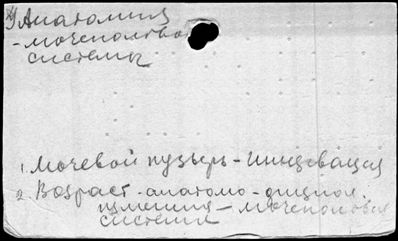 Анатомия
- мочеполовой
системы
1. Мочевой пузырь - иннервация
2. Возраст. анатомо - физиол.
изменения - мочеполовая
система